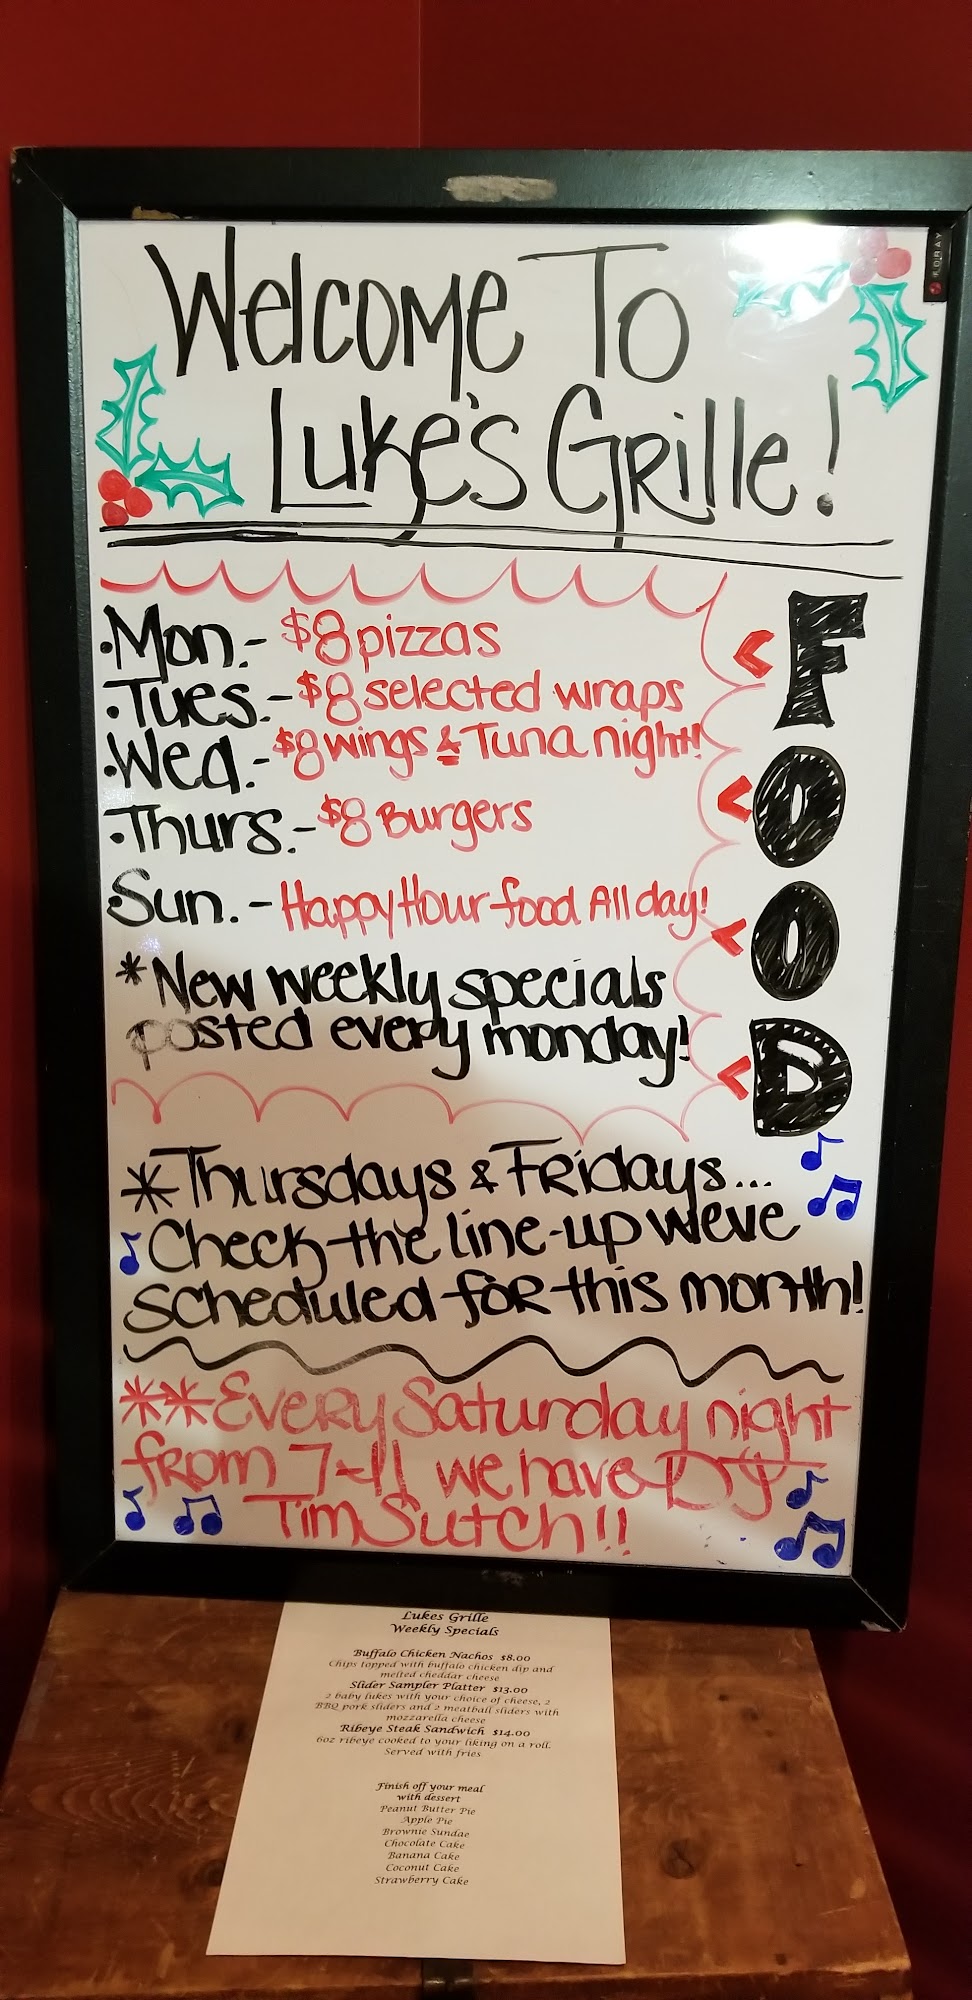 Welcome To
Luke's Grille!
FORAY
•Mon.- $8 pizzas
•Tues.- $8 selected wraps
•Wed.- $8 wings & Tuna night!
•Thurs.- $8 Burgers
Sun. - Happy Hour food All day!
*New weekly specials
posted every monday!
FOOD
*Thursdays & Fridays...
Check the line-up weve
scheduled for this month!
**Every Saturday night
from 7-11 we have DJ
Tim Sutch!!
Lukes Grille
Weekly Specials
Buffalo Chicken Nachos $8.00
Chips topped with buffalo chicken dip and
melted cheddar cheese
Slider Sampler Platter $13.00
2 baby lukes with your choice of cheese, 2
BBQ pork sliders and 2 meatball sliders with
mozzarella cheese
Ribeye Steak Sandwich $14.00
6oz ribeye cooked to your liking on a roll.
Served with fries
Finish off your meal
with dessert
Peanut Butter Pie
Apple Pie
Brownie Sundae
Chocolate Cake
Banana Cake
Coconut Cake
Strawberry Cake